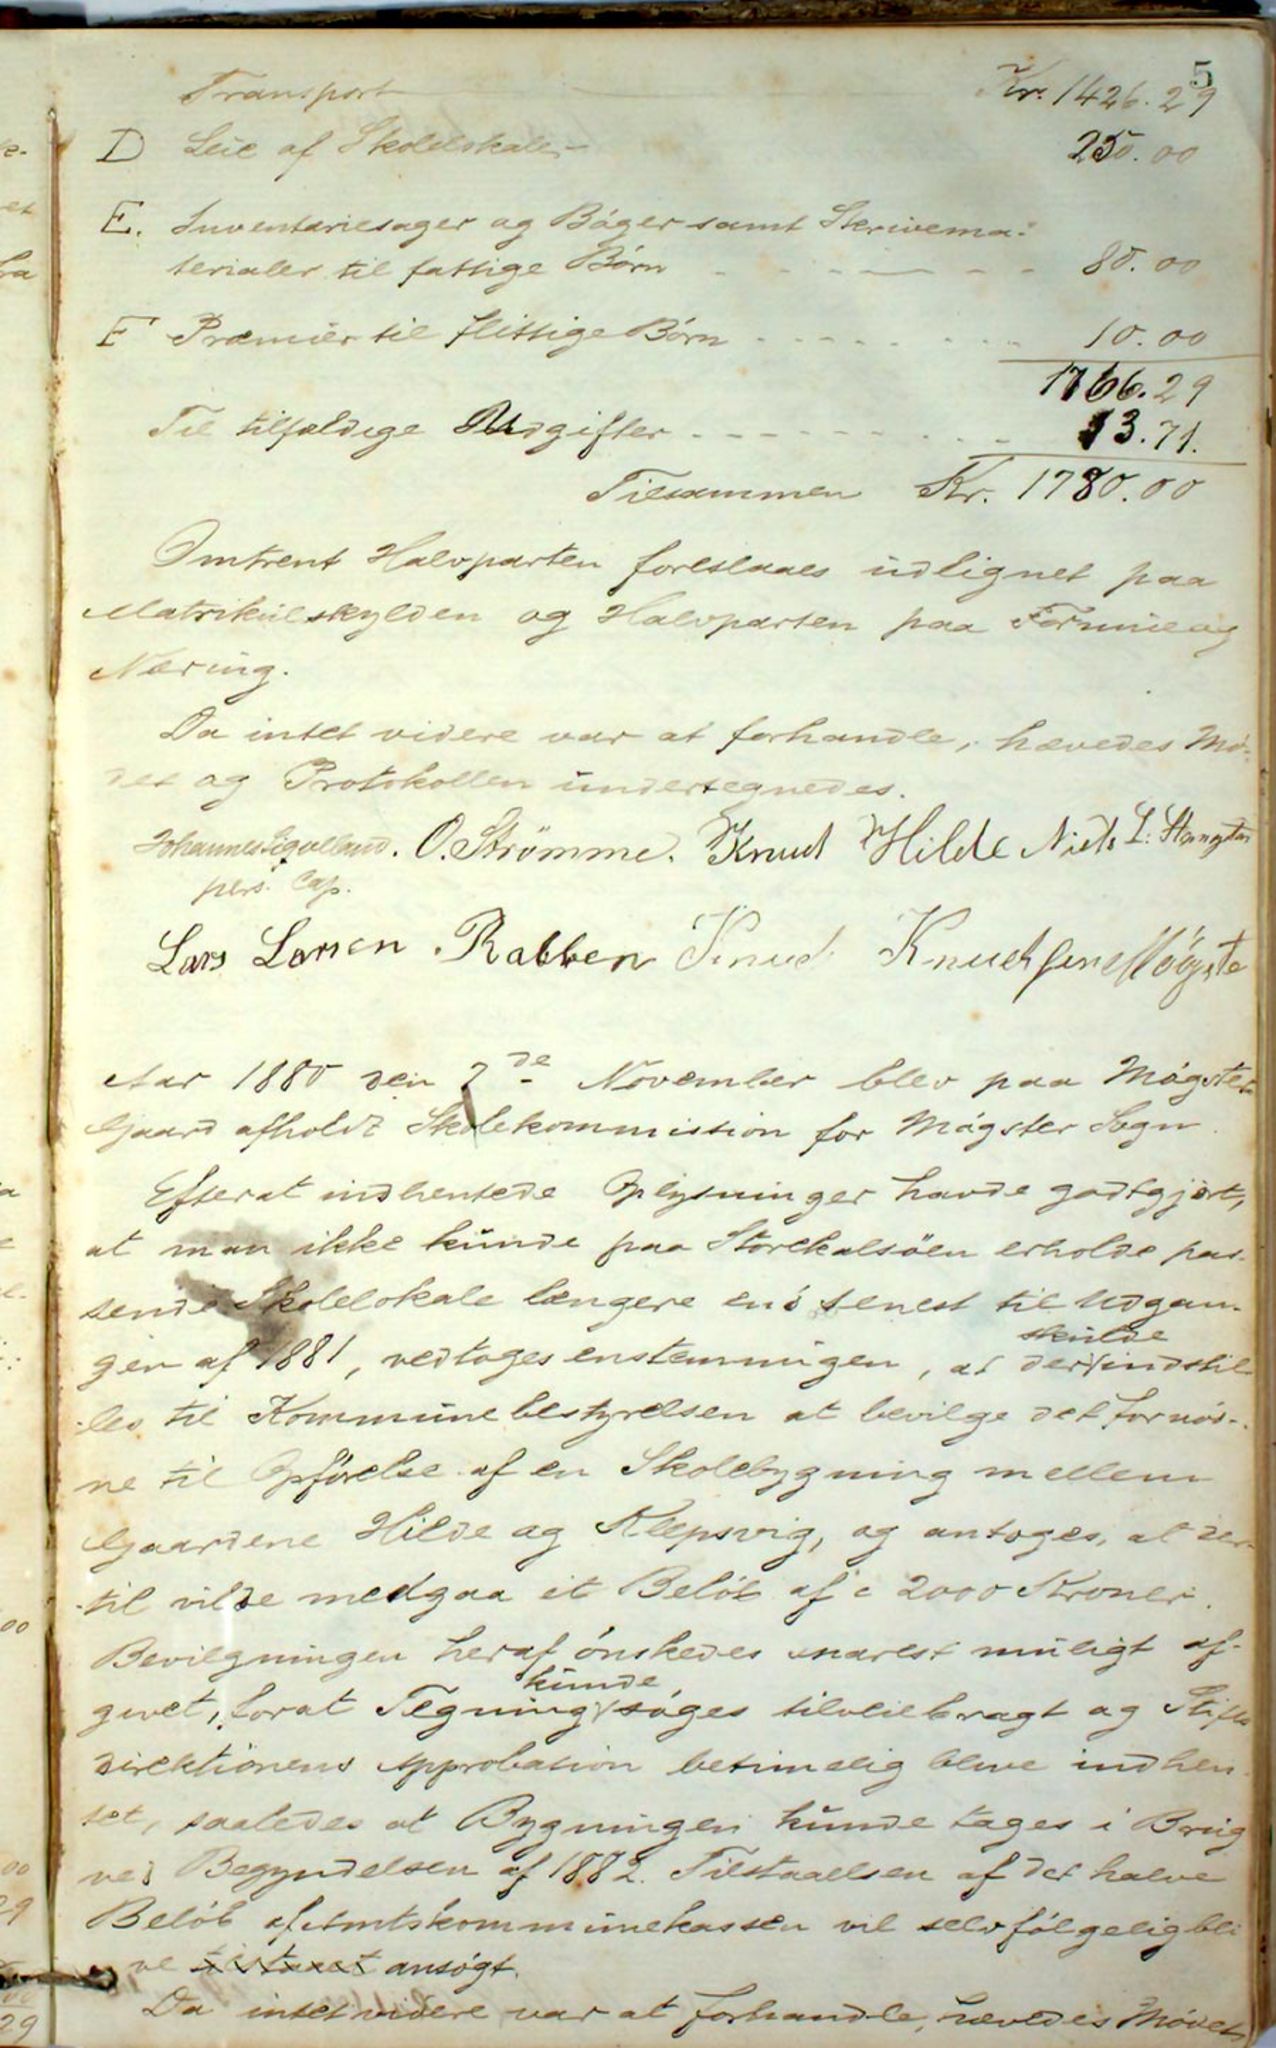 5
Transport Kr. 1426.29
D Leie af Skolelokaler 250.00
E. Inventariesager og Bøger samt Skrivema-
terialer til fattige Børn 80.00
F Præmier til flittige Børn 10.00
1766.29
Til tilfældige Udgifter 13.71.
Tilsammen Kr. 1780.00
Omtrent Halvparten foreslaaes udlignet paa
Matrikulskylden og Halvparten paa Formue og
Næring.
Da intet videre var at forhandle, hævedes Mø-
det og Protokollen undertegnedes.
Johannes Sigvolland. O. Strömme. Knud Hilde Niels L.
pers. Cap.
Lars Larsen Rabben Knud Knudsen Møgster
Aar 1880 den 2de November blev paa Møgster
Gaard afholdt Skolekommission for Møgster Sogn.
Efterat indhentede Oplysninger havde godtgjort,
at man ikke kunde paa Storekalsöen erholde pas-
sende Skolelokale længere end senest til Udgan-
gen af 1881, vedtoges enstemmigen, at der skulde indstil-
les til Kommunebestyrelsen at bevilge det fornød-
ne til Opførelse af en Skolebygning mellem
Gaardene Hilde og Klepsvig, og antoges, at der-
til vilde medgaa et Beløb af c 2000 Kroner.
Bevilgningen heraf ønskedes snarest muligt af-
givet, forat Tegning kunde søges tilveiebragt og Stifts
direktionens Approbation betimelig blive indhen-
tet, saaledes at Bygningen kunde tages i Brug
ved Begyndelsen af 1882. Tilstaaelsen af det halve
Beløb af Amtskommunekassen vil selvfølgelig bli
ve ansøgt.
Da intet videre var at forhandle, hævedes Mødet